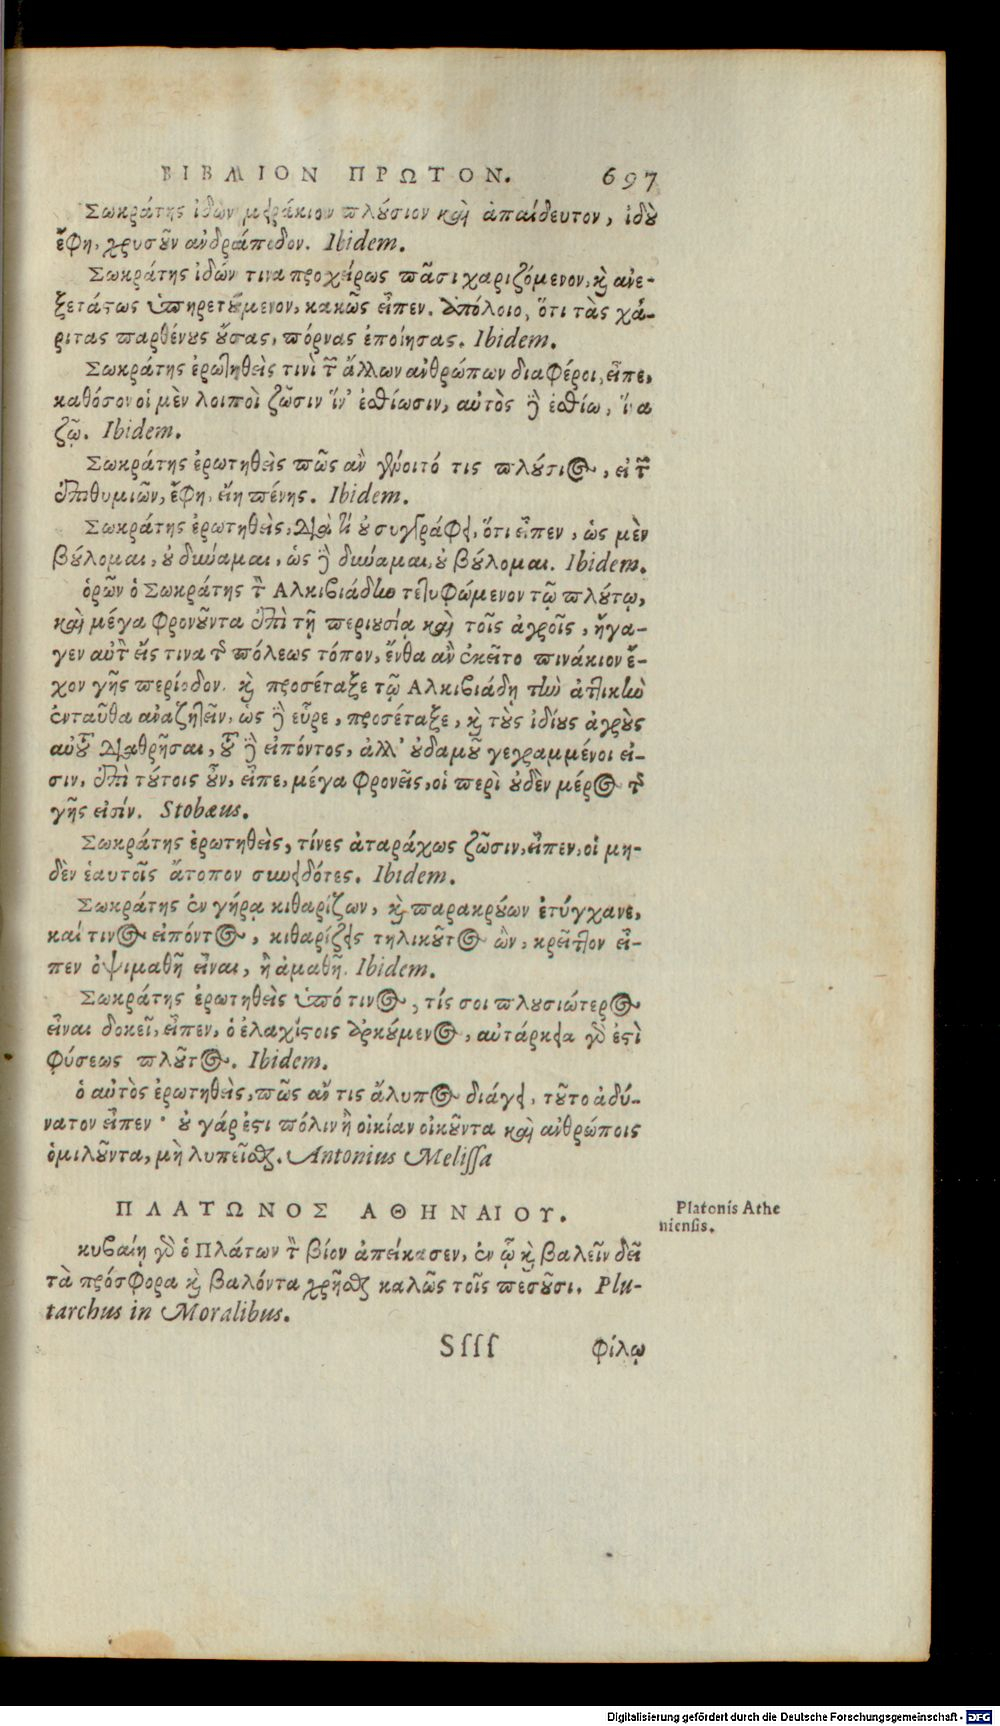 ΒΙΒΛΙΟΝ ΠΡΩΤΟΝ. 697
Σωκράτης ἰδὼν μειράκιον πλούσιον καὶ ἀπαίδευτον, ἰδοὺ
ἔφη, χρυσοῦν ἀνδράποδον. Ibidem.
Σωκράτης ἰδών τινα προχείρως πᾶσι χαριζόμενον, καὶ ἀνε-
ξετάστως ὑπηρετούμενον, κακῶς εἶπεν. ἀπόλοιο, ὅτι τὰς χά-
ριτας παρθένους οὔσας, πόρνας ἐποίησας. Ibidem.
Σωκράτης ἐρωτηθεὶς τινὶ τῶν ἄλλων ἀνθρώπων διαφέροι, εἶπε,
καθόσον οἱ μὲν λοιποὶ ζῶσιν ἵν' ἐσθίωσιν, αὐτὸς δὲ ἐσθίω, ἵνα
ζῶ. Ibidem.
Σωκράτης ἐρωτηθεὶς πῶς ἂν γένοιτό τις πλούσιος, εἰ τῶν
ἐπιθυμιῶν, ἔφη, εἴη πένης. Ibidem.
Σωκράτης ἐρωτηθεὶς, διὰ τί οὐ συγγράφει, ὅτι εἶπεν, ὡς μὲν
βούλομαι, οὐ δύναμαι, ὡς δὲ δύναμαι, οὐ βούλομαι. Ibidem.
ὁρῶν ὁ Σωκράτης τὸν Αλκιβιάδην τετυφώμενον τῷ πλούτῳ,
καὶ μέγα φρονοῦντα ἐπὶ τῇ περιουσίᾳ καὶ τοῖς ἀγροῖς, ἤγα-
γεν αὐτὸν εἴς τινα τῆς πόλεως τόπον, ἔνθα ἂν ἐκεῖτο πινάκιον ἔ-
χον γῆς περίοδον. καὶ προσέταξε τῷ Αλκιβιάδῃ τὴν ἀττικὴν
ἐνταῦθα ἀναζητεῖν, ὡς δὲ εὗρε, προσέταξε, καὶ τοὺς ἰδίους ἀγροὺς
αὐτοῦ διαθρῆσαι, τοῦ δὲ εἰπόντος, ἀλλ' οὐδαμοῦ γεγραμμένοι εἰ-
σιν, ἐπὶ τούτοις οὖν, εἶπε, μέγα φρονεῖς, οἱ περὶ οὐδὲν μέρος τῆς
γῆς εἰσίν. Stobæus.
Σωκράτης ἐρωτηθεὶς, τίνες ἀταράχως ζῶσιν, εἶπεν, οἱ μη-
δὲν ἑαυτοῖς ἄτοπον συνειδότες. Ibidem.
Σωκράτης ἐν γήρᾳ κιθαρίζων, καὶ παρακρούων ἐτύγχανε,
καί τινος εἰπόντος, κιθαρίζεις τηλικοῦτος ὢν, κρεῖττον εἶ-
πεν ὀψιμαθῆ εἶναι, ἢ ἀμαθῆ. Ibidem.
Σωκράτης ἐρωτηθεὶς ὑπό τινος, τίς σοι πλουσιώτερος
εἶναι δοκεῖ, εἶπεν, ὁ ἐλαχίστοις ἀρκούμενος, αὐτάρκεια γὰρ ἐστὶ
φύσεως πλοῦτος. Ibidem.
ὁ αὐτὸς ἐρωτηθεὶς, πῶς ἄν τις ἄλυπος διάγει, τοῦτο ἀδύ-
νατον εἶπεν· οὐ γάρ ἐστι πόλιν ἢ οἰκίαν οἰκοῦντα καὶ ἀνθρώποις
ὁμιλοῦντα, μὴ λυπεῖσθαι. Antonius Melissa
ΠΛΑΤΩΝΟΣ ΑΘΗΝΑΙΟΥ.
Platonis Athe
niensis.
κυβείῃ γὰρ ὁ Πλάτων τὸν βίον ἀπείκασεν, ἐν ᾧ καὶ βαλεῖν δεῖ
τὰ πρόσφορα καὶ βαλόντα χρῆσθαι καλῶς τοῖς πεσοῦσι. Plu-
tarchus in Moralibus.
Sſſſ φίλῳ
Digitalisierung gefördert durch die Deutsche Forschungsgemeinschaft - DFG